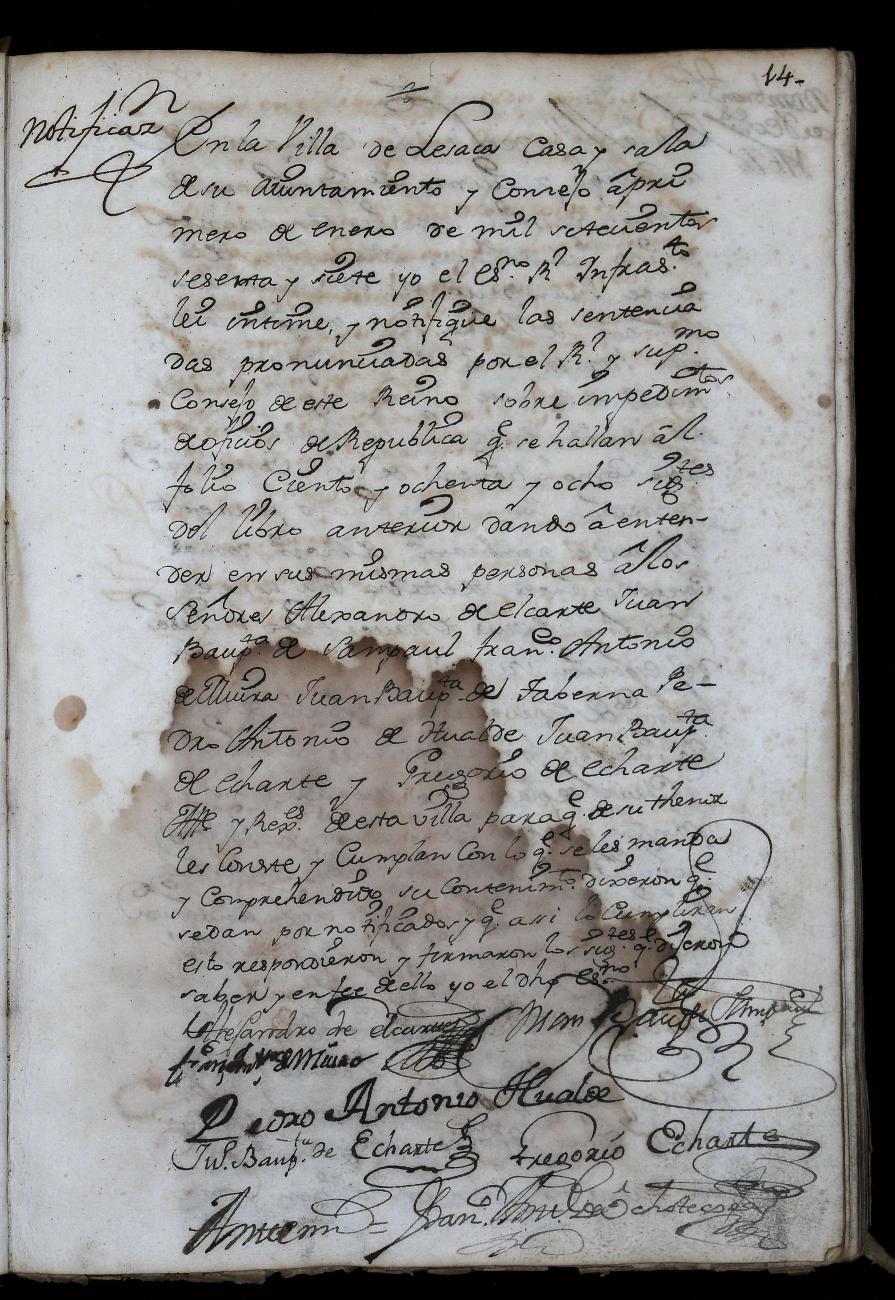 14-
Notificaon
En la Villa de Lesaca Casa y sala
de su Aiuntamiento y Consejo â pri
mero de Enero de mil setecientos
sesenta y siete yo el essno Rl Infrasto
lei intime, y notifique las sentencia
das pronunciadas por el Rl y supmo
Consejo de este Reino sobre impedimtos
de oficios de Republica qe se hallan âl
folio Ciento y ochenta y ocho sigtes
del libro anterior dando â enten-
der en sus mismas personas â los
señores Alexandro de elcarte Juan
Baupta de Sampaul Franco Antonio
de Miura Juan Baupta de Taberna Pe-
dro Antonio de Hualde Juan Baupta
de Echarte y Gregorio de Echarte
Alte y Rexes de esta villa para qe de su thenor
les Conste y Cumplan Con lo qe se les manda
y Comprehendido su Contenimto dixeron qe
se dan por notificados y qe assi lo Cumpliran
esto respondieron y firmaron los sigtes qe dijeron
saber y en fee de ello yo el dho essno
Alesandro de elcarte Juan Baupta Sampaul
Fran Antto de Miura
Pedro Antonio Hualde
Jun Baupta de Echarte Gregorio Echarte
Ante mi = Fran Antt de